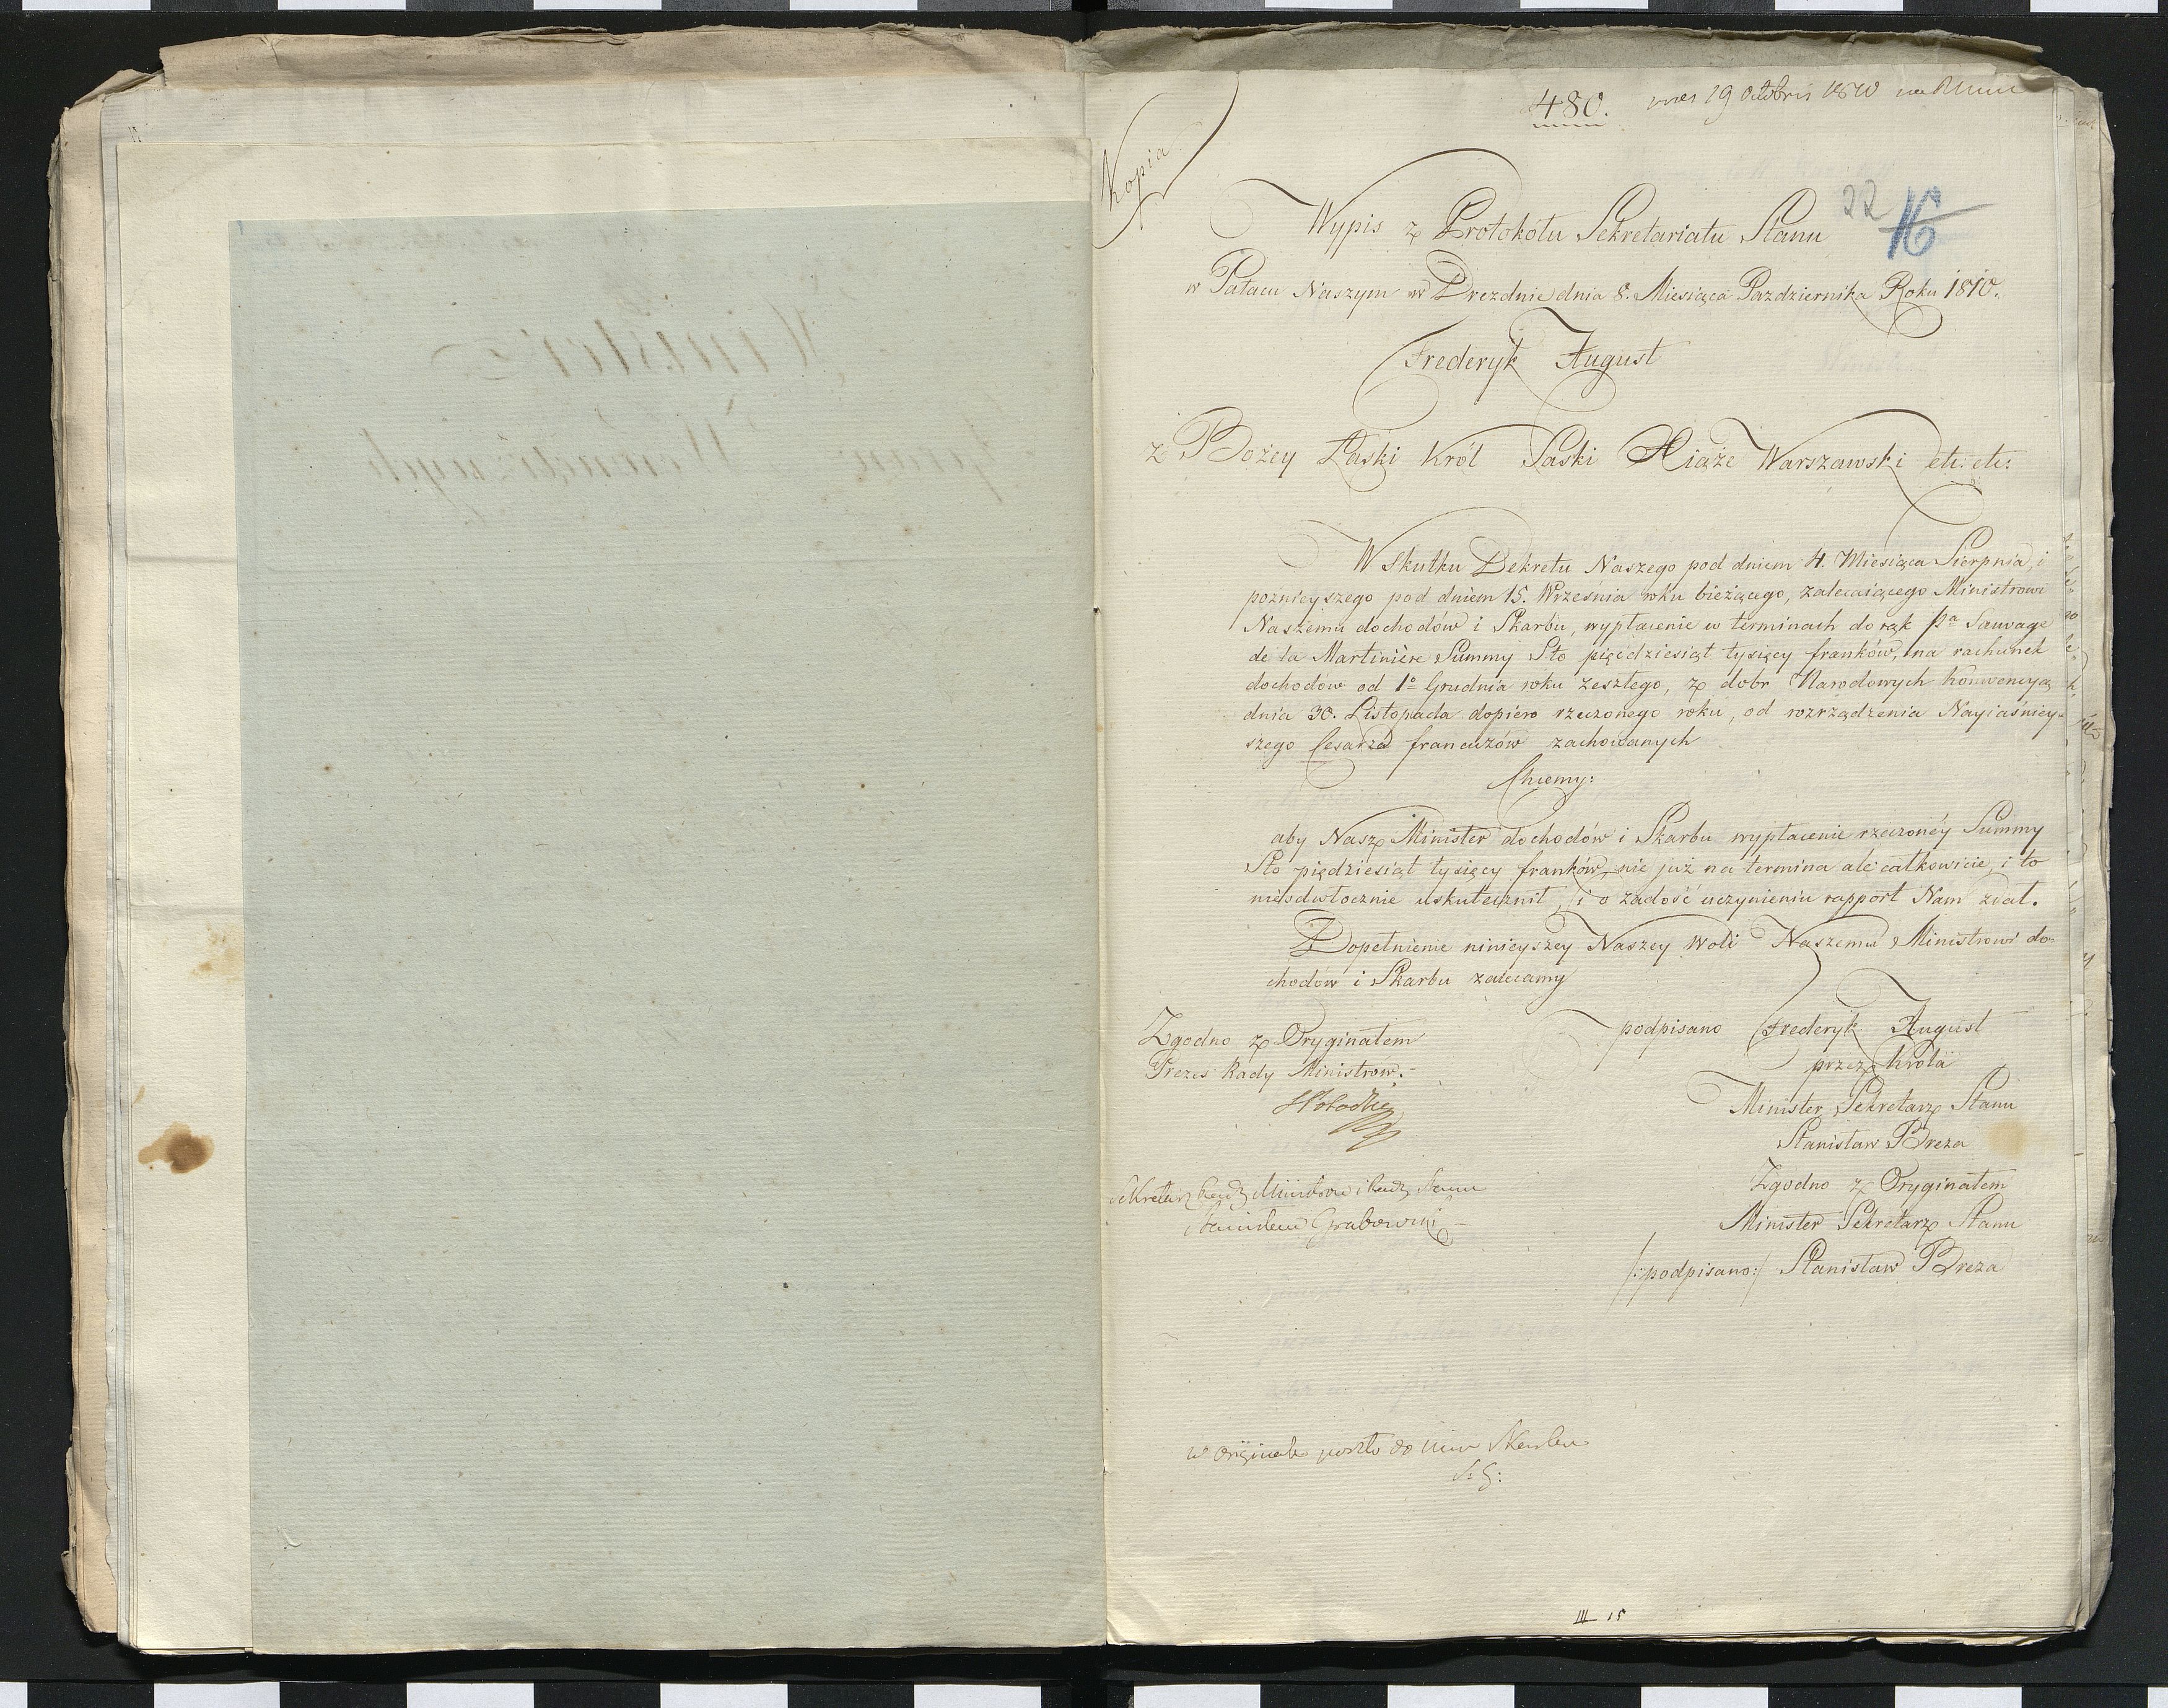 480. 19 Octobris 1810
Kopia
22 16
Wypis z Protokółu Sekretariatu Stanu
w Pałacu Naszym w Dreznie dnia 8. Miesiąca Pazdziernika Roku 1810.
Frederyk August
z Bożey Łaski Król Saski Xiąże Warszawski etc: etc:
W Skutku Dekretu Naszego pod dniem 4. Miesiąca Sierpnia, i
poznieyszego pod dniem 15. Września roku bieżącego, zalecaiącego Ministrowi
Naszemu dochodów i Skarbu, wypłacenie w terminach do rąk Pa Sauvage
de la Martinière Summy Sto pięćdziesiąt tysięcy franków, na rachunek
dochodów od 1o Grudnia roku zeszłego, z dobr Narodowych Konwencyą
dnia 30. Listopada dopiero rzeczonego roku, od rozrządzenia Nayiaśniey-
szego Cesarza francuzów zachowanych
Chcemy:
aby Nasz Minister dochodów i Skarbu wypłacenie rzeczonéy Summy
Sto pięćdziesiąt tysięcy franków, nie już na termina ale całkowicie, i to
nieodwłocznie uskutecznił, i o zadość uczynieniu rapport Nam zdał.
Dopełnienie ninieyszey Naszey Woli Naszemu Ministrowi do-
chodów i Skarbu zalecamy
Zgodno z Oryginałem
Prezes Rady Ministrów.
Sekretarz Rady Ministrów i Rady Stanu
Stanisław Grabowski
podpisano Frederyk August
przez Króla
Minister Sekretarz Stanu
Stanisław Breza
Zgodno z Oryginałem
Minister Sekretarz Stanu
/:podpisano:/ Stanisław Breza
w Originale poszło do Min Skarbu
S. G:
III 15